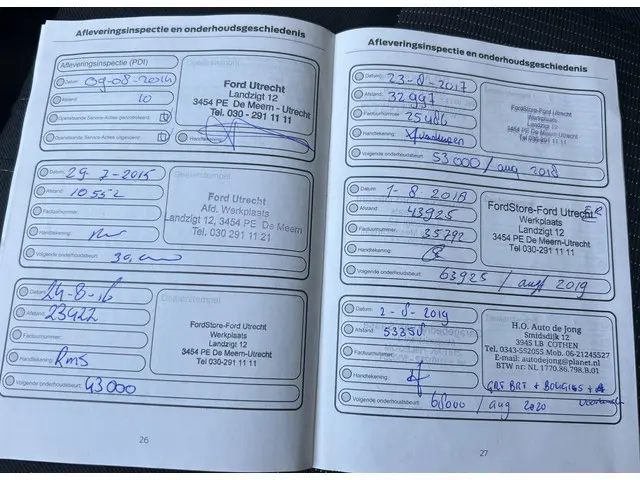 Afleveringsinspectie en onderhoudsgeschiedenis
Afleveringsinspectie (PDI)
Datum: 09-08-2014
Afstand: 10
Openstaande Service-Acties gecontroleerd:
Openstaande Service-Acties uitgevoerd:
Handtekening:
Ford Utrecht
Landzigt 12
3454 PE De Meern - Utrecht
Tel. 030 - 291 11 11
Datum: 29-7-2015
Afstand: 10552
Factuurnummer:
Handtekening:
Volgende onderhoudsbeurt:
Ford Utrecht
Afd. Werkplaats
Landzigt 12, 3454 PE De Meern
Tel. 030 291 11 21
Datum: 24-8-16
Afstand: 23422
Factuurnummer:
Handtekening: Rms
Volgende onderhoudsbeurt: 43000
Dealerstempel
FordStore-Ford Utrecht
Werkplaats
Landzigt 12
3454 PE De Meern-Utrecht
Tel 030-291 11 11
26
Afleveringsinspectie en onderhoudsgeschiedenis
Datum: 23-8-2017
Afstand: 32997
Factuurnummer: 25486
Handtekening:
Volgende onderhoudsbeurt: 53.000 / aug 2018
FordStore-Ford Utrecht
Werkplaats
Landzigt 12
3454 PE De Meern-Utrecht
Tel 030-291 11 11
Datum: 1-8-2018
Afstand: 43925
Factuurnummer: 35792
Handtekening:
Volgende onderhoudsbeurt: 63925 / aug 2019
FordStore-Ford Utrecht
Werkplaats
Landzigt 12
3454 PE De Meern-Utrecht
Tel 030-291 11 11
Datum: 2-8-2019
Afstand: 53358
Factuurnummer:
Handtekening:
Volgende onderhoudsbeurt: 68000 / aug 2020
H.O. Auto de Jong
Smidsdijk 12
3945 LB COTHEN
Tel. 0343-552055 Mob. 06-21245527
E-mail: autodejong@planet.nl
BTW nr: NL 1770.86.798.B.01
GRT BRT + BOUGIES +
27